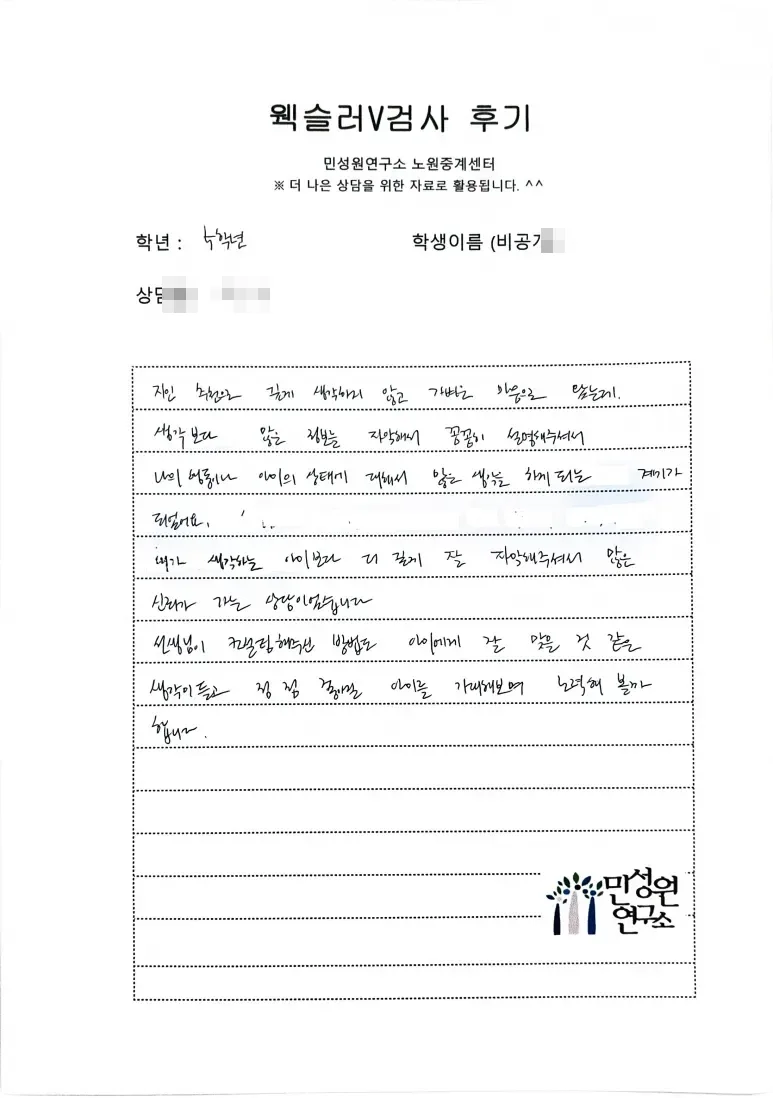 웩슬러V검사 후기
민성원연구소 노원중계센터
※ 더 나은 상담을 위한 자료로 활용됩니다. ^^
학년 : 학년
학생이름 (비공개
상담
지인 추천으로 깊게 생각하지 않고 가벼운 마음으로 왔는데.
생각보다 많은 정보를 파악해서 꼼꼼히 설명해주셔서
나의 행동이나 아이의 상태에 대해서 많은 생각을 하게 되는 계기가
되었어요.
내가 생각하는 아이보다 더 깊게 잘 파악해주셔서 많은
신뢰가 가는 상담이었습니다
선생님이 컨설팅해주신 방법도 아이에게 잘 맞을 것 같은
생각이 들고 점 점 아이를 기대해보며 노력해 볼까
합니다.
민성원
연구소